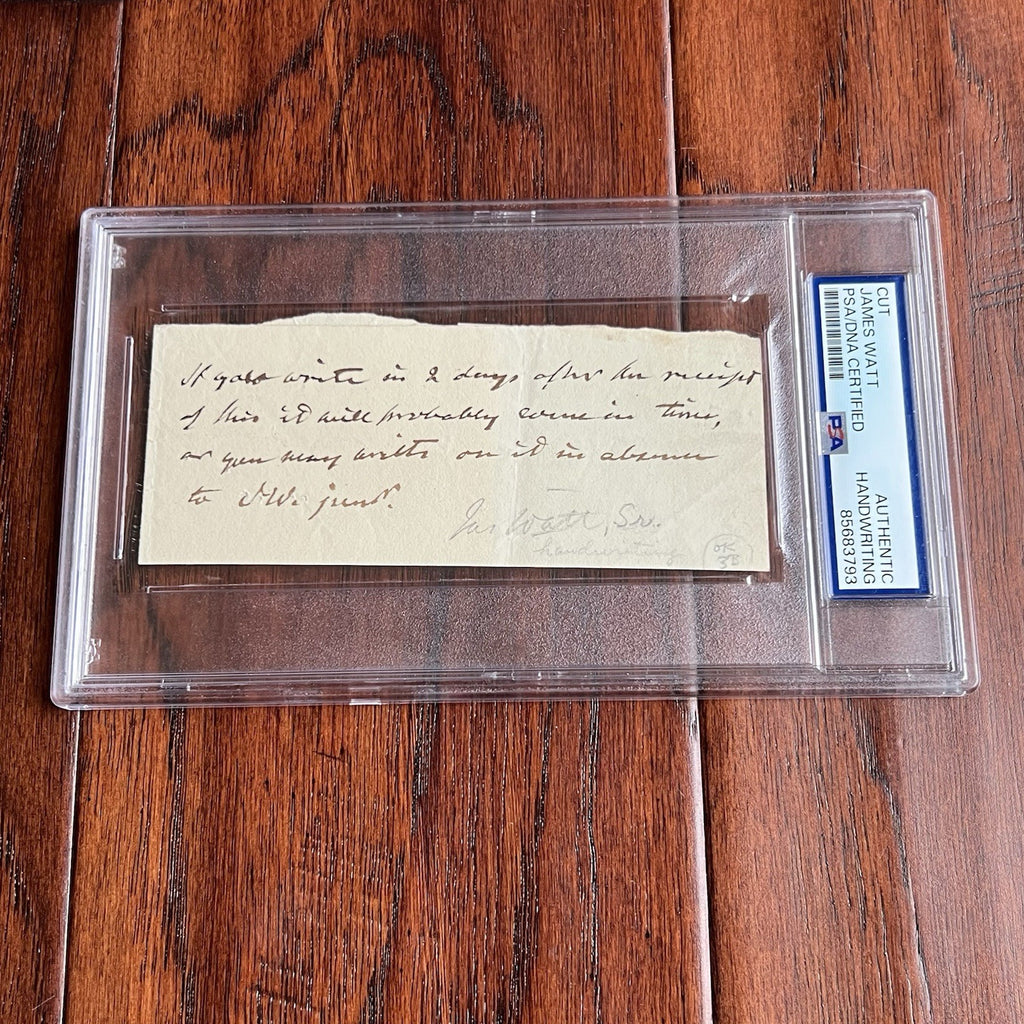 If you write in 2 days after the receipt
of this it will probably come in time,
or you may write on it in absence
to JW. junr.
Jas Watt, Sr.
handwriting
OK
CUT
JAMES WATT
PSA/DNA CERTIFIED
PSA
AUTHENTIC
HANDWRITING
85683793